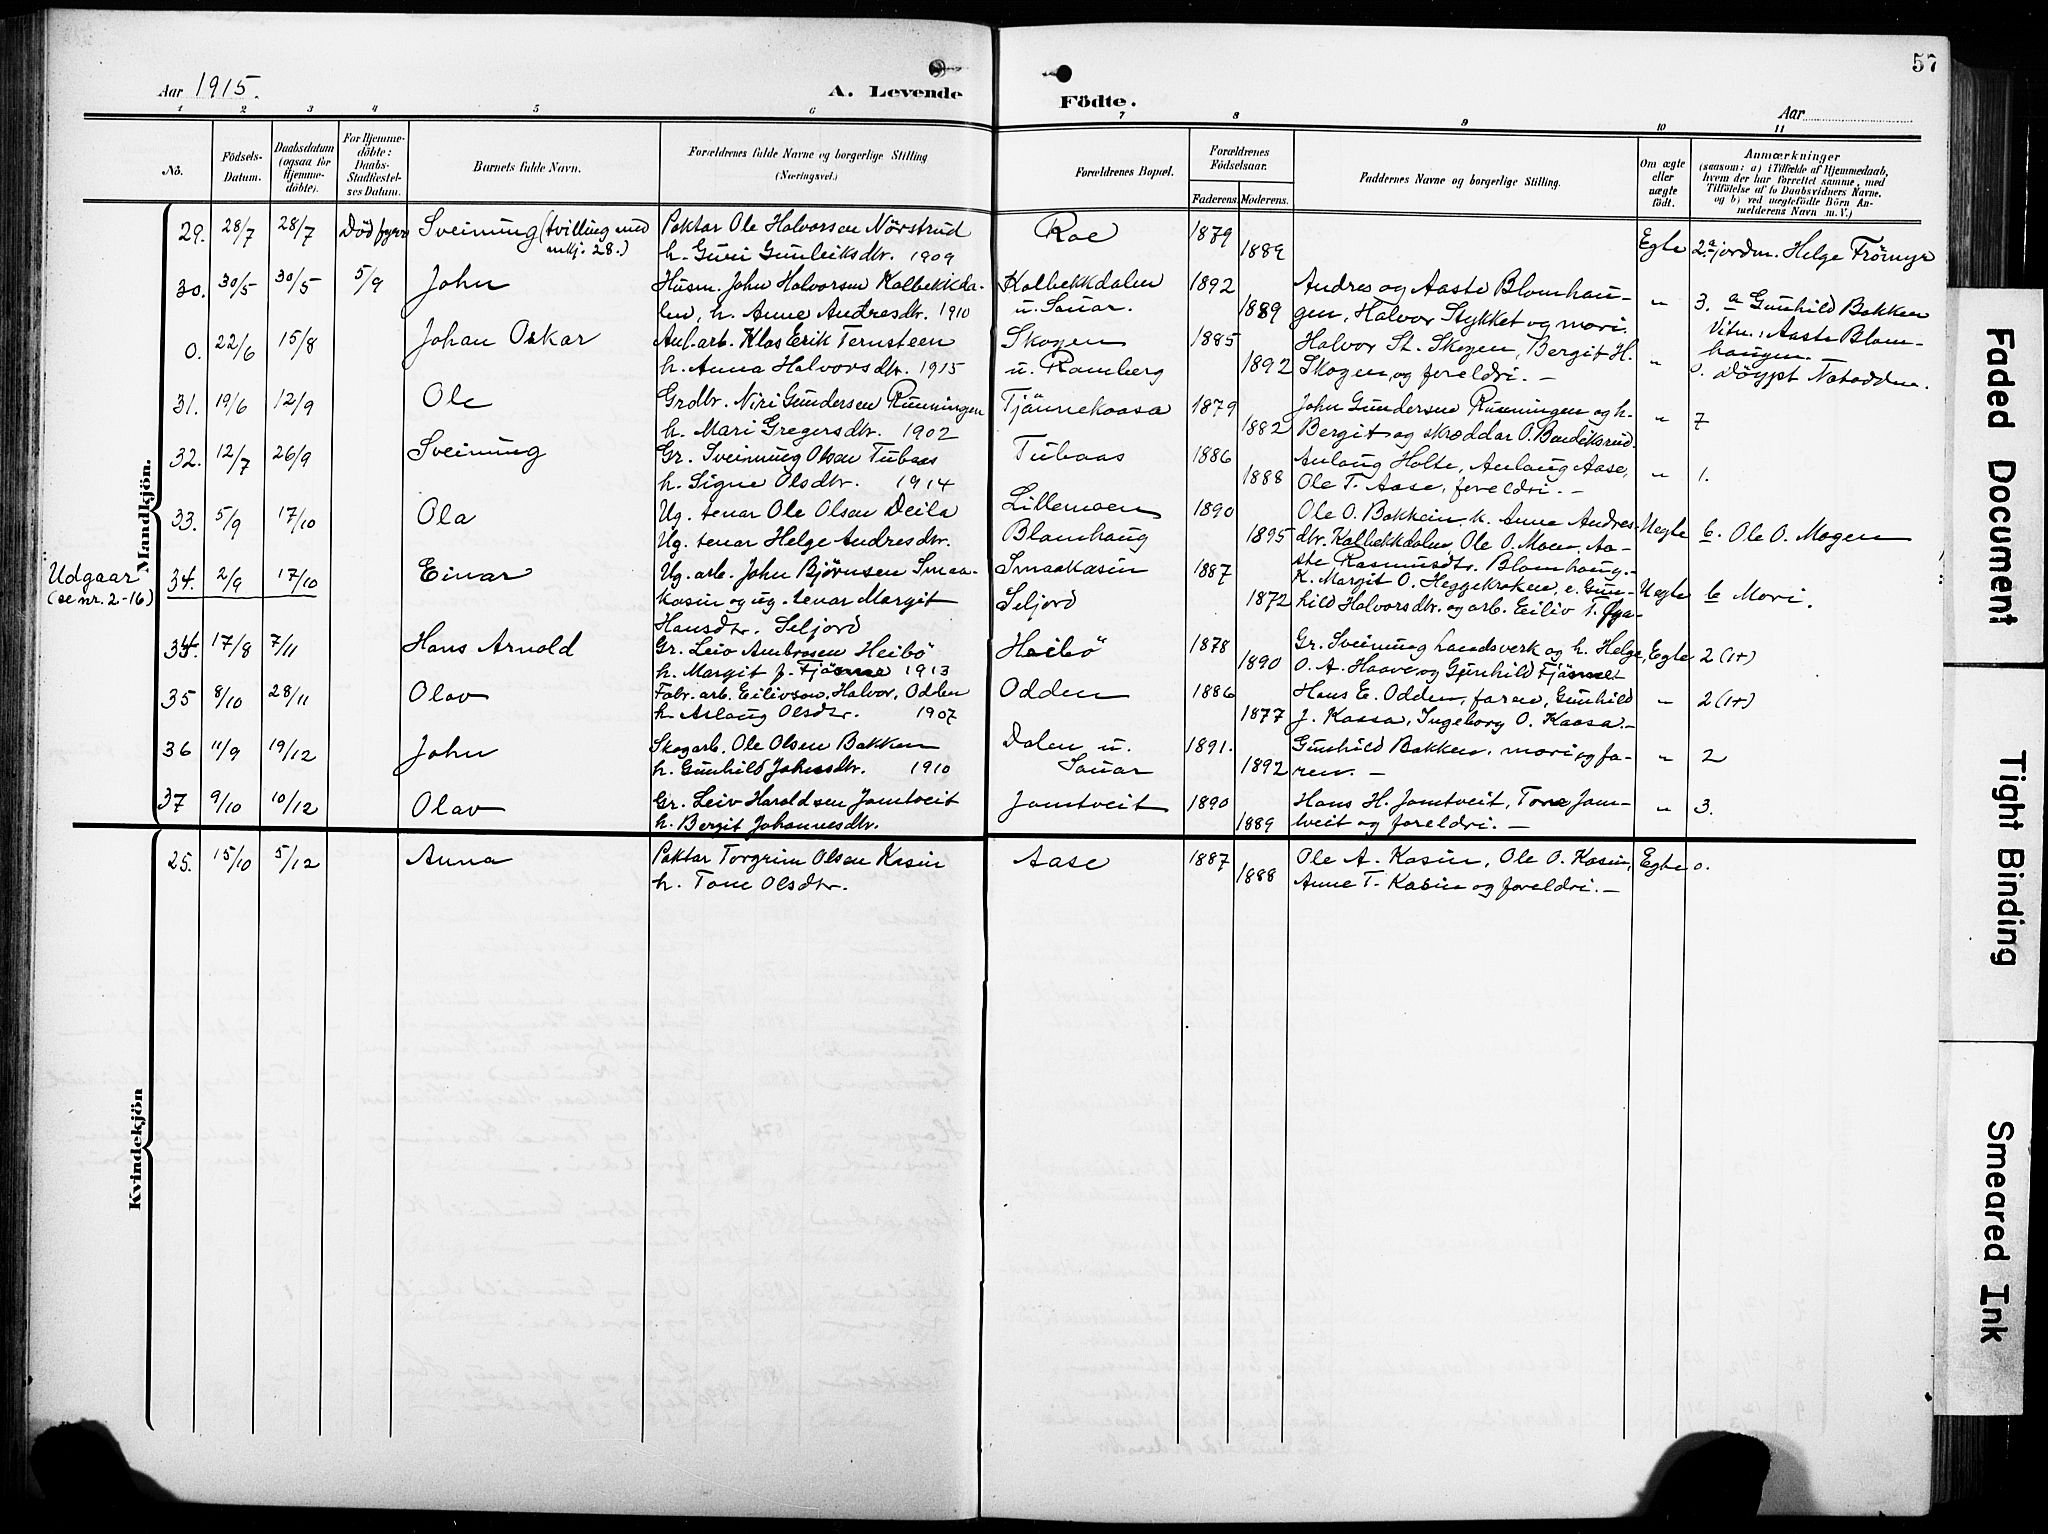 57
Aar 1915.
A. Levende Födte.
Aar
1 2 3 4 5 6 7 8 9 10 11
No.
Födsels-Datum.
Daabsdatum (ogsaa for Hjemme-döbte).
For Hjemme-döbte: Daabs-Stadfæstel-ses Datum.
Barnets fulde Navn.
Forældrenes fulde Navne og borgerlige Stilling (Næringsvei.)
Forældrenes Bopæl.
Forældrenes Födselsaar.
Faderens. Moderens.
Faddernes Navne og borgerlige Stilling.
Om ægte eller uægte födt.
Anmærkninger
(saasom: a) i Tilfælde af Hjemmedaab, hvem der har forrettet samme, med Tilföielse af to Daabsvidners Navne, og b) ved uægtefödte Börn An-melderens Navn m. V.)
Mandkjön.
29. 28/7 28/7 Död Sveinung (tvilling med mkj. 28.) Paktar Ole Halvorsen Nörstrud Roe 1879 Egte 2. a jordm. Helge Frömyr
h. Guri Gunleiksdtr. 1909 1889
30. 30/5 30/5 5/9 John Husm. John Halvorsen Kolbekkda- Kolbekkdalen 1892 Andres og Aaste Blomhau- " 3. a Gunhild Bakken
len, h. Anne Andresdtr. 1910 u. Sauar. 1889 gen, Halvor Stykket og mori. Vitn.: Aaste Blom-
haugen.
0. 22/6 15/8 Johan Oskar Anl.arb. Klas Erik Ternsteen Skogen 1885 Halvor St. Skogen, Bergit H. "
h. Anna Halvorsdtr. 1915 u. Ramberg 1892 Skogen, og foreldri. — 0. Döypt Notodden.
31. 19/6 12/9 Ole Grdbr. Niri Gundersen Runningen Tjönnekaasa 1879 John Gundersen Runningen og h. " 7
h. Mari Gregersdtr. 1902 1882 Bergit og skræddar O. Bendiksrud.
32. 12/7 26/9 Sveinung Gr. Sveinung Olsen Tubaas Tubaas 1886 Anlaug Holte, Anlaug Aase, " 1.
h. Signe Olsdtr. 1914 1888 Ole T. Aase, foreldri. —
33. 5/9 17/10 Ola Ug. tenar Ole Olsen Deila Lillemoen 1890 Ole O. Bakkein, k. Anne Andres- Uegte b. Ole O. Mogen
Ug. tenar Helge Andresdtr. Blomhaug 1895 dtr. Kolbekkdalen, Ole O. Moen, Aa-
ste Rasmusdtr. Blomhaug.-
Udgaar (se nr. 2-16) 34. 2/9 17/10 Einar Ug. arb. John Bjørnsen Smaa- Smaakasin 1887 K. Margit O. Heggekroken, e. Gun- Uegte b Mori.
kasin og ug. tenar Margit Seljord 1872 hild Halvorsdtr. og arb. Eiliv T.
Hansdtr. Seljord
34. 17/8 7/11 Hans Arnold Gr. Leiv Ambrosen Heibö Heibö 1878 Gr. Sveinung Landsverk og h. Helge, Egte 2 (1+)
h. Margit f. Fjösne 1913 1890 O. A. Haave og Gunhild
35 8/10 28/11 Olav Fabr. arb. Eilivson, Halvor, Odden Odden 1886 Hans E. Odden, faren, Gunhild " 2 (1+)
h. Aslaug Olsdtr. 1907 1877 J. Kaasa, Ingeborg O. Kaasa.—
36 11/9 19/12 John Skogarb. Ole Olsen Bakken Dalen u. 1891. Gunhild Bakken, mori og fa- " 2
h. Gunhild Johnsdtr. 1910 Sauar 1892 ren. —
37 9/10 10/12 Olav Gr. Leiv Haroldsen Jamtveit Jamtveit 1890 Hans H. Jamtveit, Tone Jam- " 3.
h. Bergit Johannesdtr. 1889 tveit og foreldri. —
Kvindekjön
25. 15/10 5/12 Anna Paktar Torgrim Olsen Kasin Aase 1887 Ole A. Kasin, Ole O. Kasin, Egte 0.
h. Tone Olsdtr. 1888 Anne T. Kasin og foreldri. —
Faded Document
Tight Binding
Smeared Ink